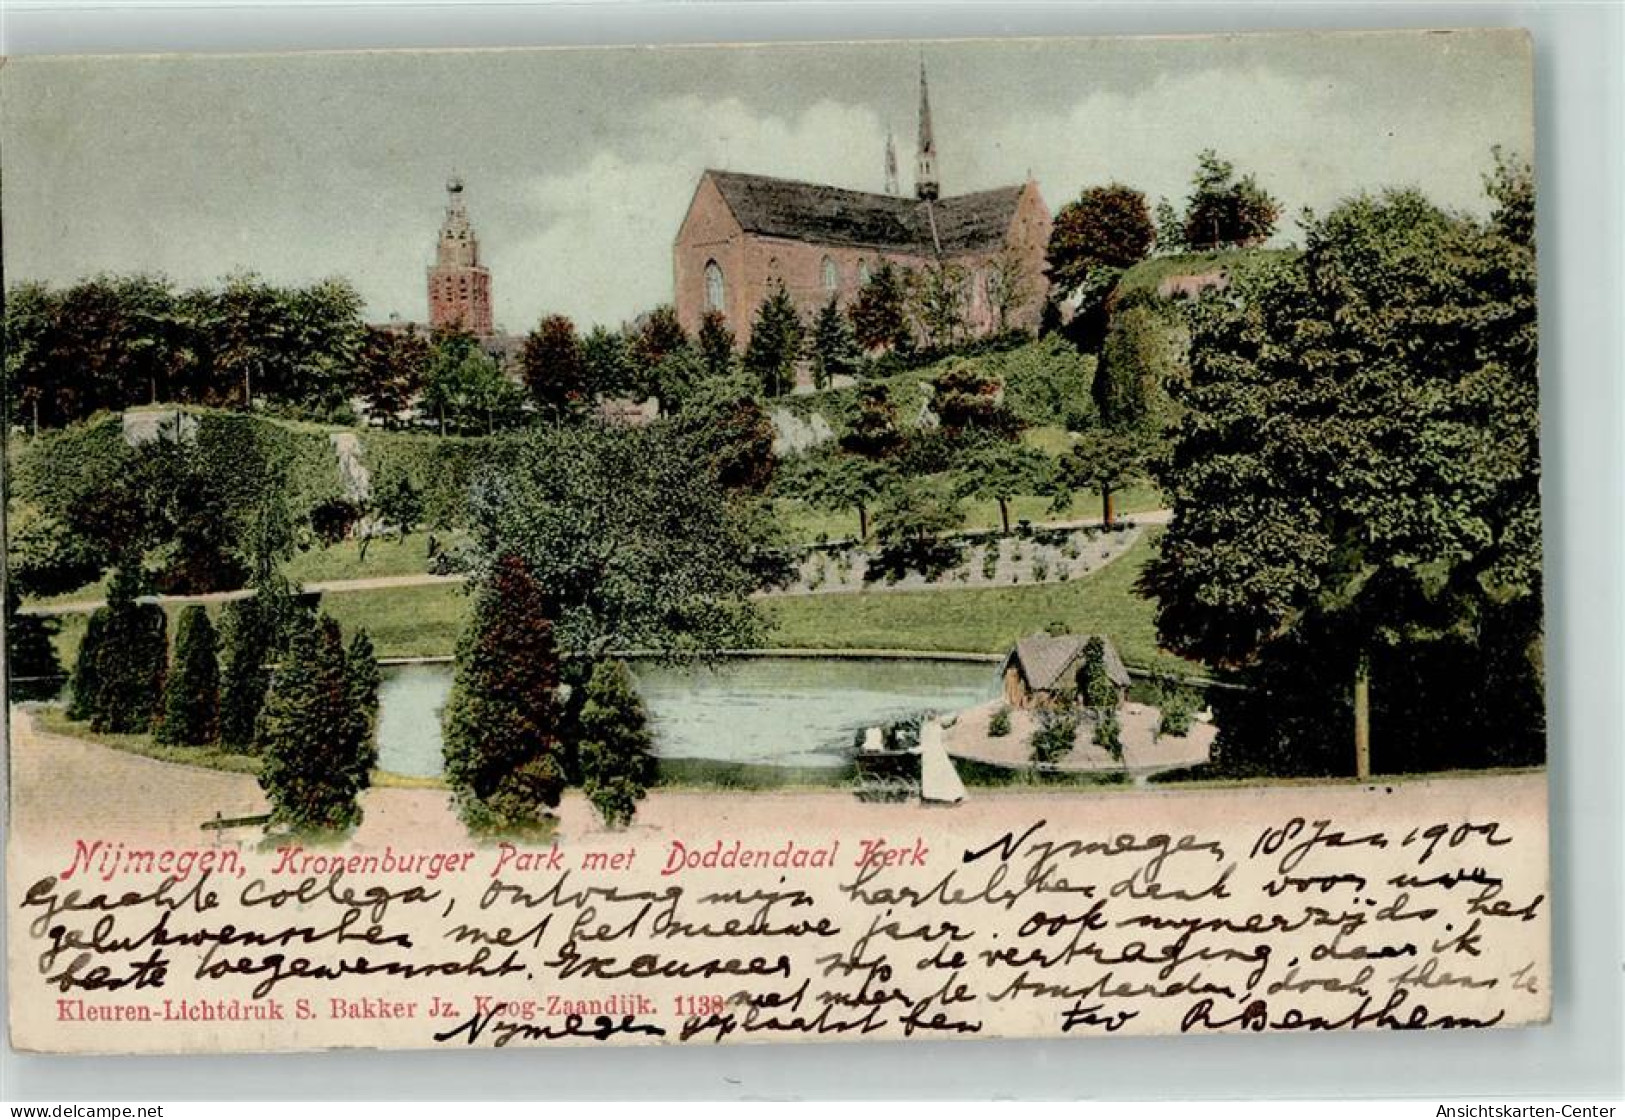 Nijmegen, Kronenburger Park met Doddendaal Kerk
Nymegen 18 Jan 1902
Geachte Collega, ontvang mijn hartelyken dank voor uwe
gelukwenschen met het nieuwe jaar. Ook mynerzijds het
beste toegewenscht. Excuseer de vertraging, daar ik
niet meer te Amsterdam, doch thans te
Kleuren-Lichtdruk S. Bakker Jz. Koog-Zaandijk. 1138
Nymegen geplaatst ben
R Benthem
www.ansichtskarten-center.de
Ansichtskarten-Center